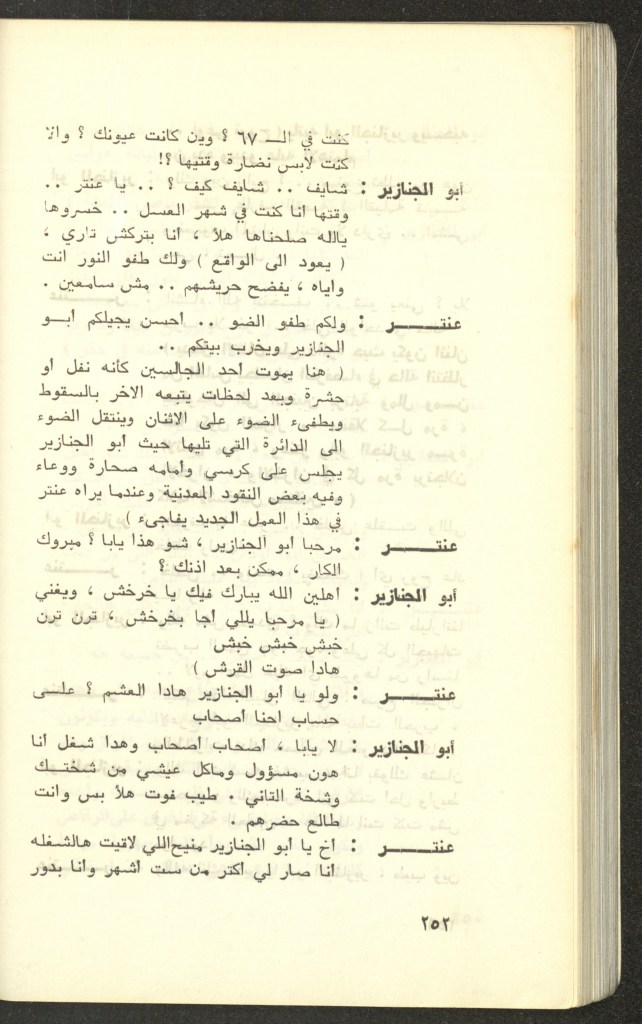 كنت في الــ ٦٧ ؟ وين كانت عيونك ؟ وانا
كنت لابس نضارة وقتيها ؟!
أبو الجنازير : شايف .. شايف كيف ؟ .. يا عنتر ..
وقتها انا كنت في شهر العسل .. خسروها
يالله صلحناها هلأ ، انا بتركش تاري ،
( يعود الى الواقع ) ولك طفو النور انت
واياه ، يفضح حريشهم .. مش سامعين .
عنتــــــر : ولكم طفو الضو .. احسن يجيلكم أبــو
الجنازير ويخرب بيتكم ..
( هنا يموت احد الجالسين كأنه نفل او
حشرة وبعد لحظات يتبعه الاخر بالسقوط
ويطفىء الضوء على الاثنان وينتقل الضوء
الى الدائرة التي تليها حيث ابو الجنازير
يجلس على كرسي وامامه صحارة ووعاء
وفيه بعض النقود المعدنية وعندما يراه عنتر
في هذا العمل الجديد يفاجىء )
عنتــــــر : مرحبا ابو الجنازير ، شو هذا يابا ؟ مبروك
الكار ، ممكن بعد اذنك ؟
أبو الجنازير : اهلين الله يبارك فيك يا خرخش ، ويغني
( يا مرحبا يللي أجا بخرخش ، ترن ترن
خبش خبش خبش
هادا صوت القرش )
عنتــــــر : ولو يا ابو الجنازير هادا العشم ؟ علــى
حساب احنا أصحاب
أبو الجنازير : لا يابا ، اصحاب أصحاب وهدا شغل أنا
هون مسؤول وماكل عيشي من شختــك
وشخة التاني . طيب فوت هلأ بس وانت
طالع حضرهم .
عنتــــــر : أخ يا ابو الجنازير منيح اللي لاقيت هالشغله
أنا صار لي اكتر من ست اشهر وانا بدور
٢٥٢